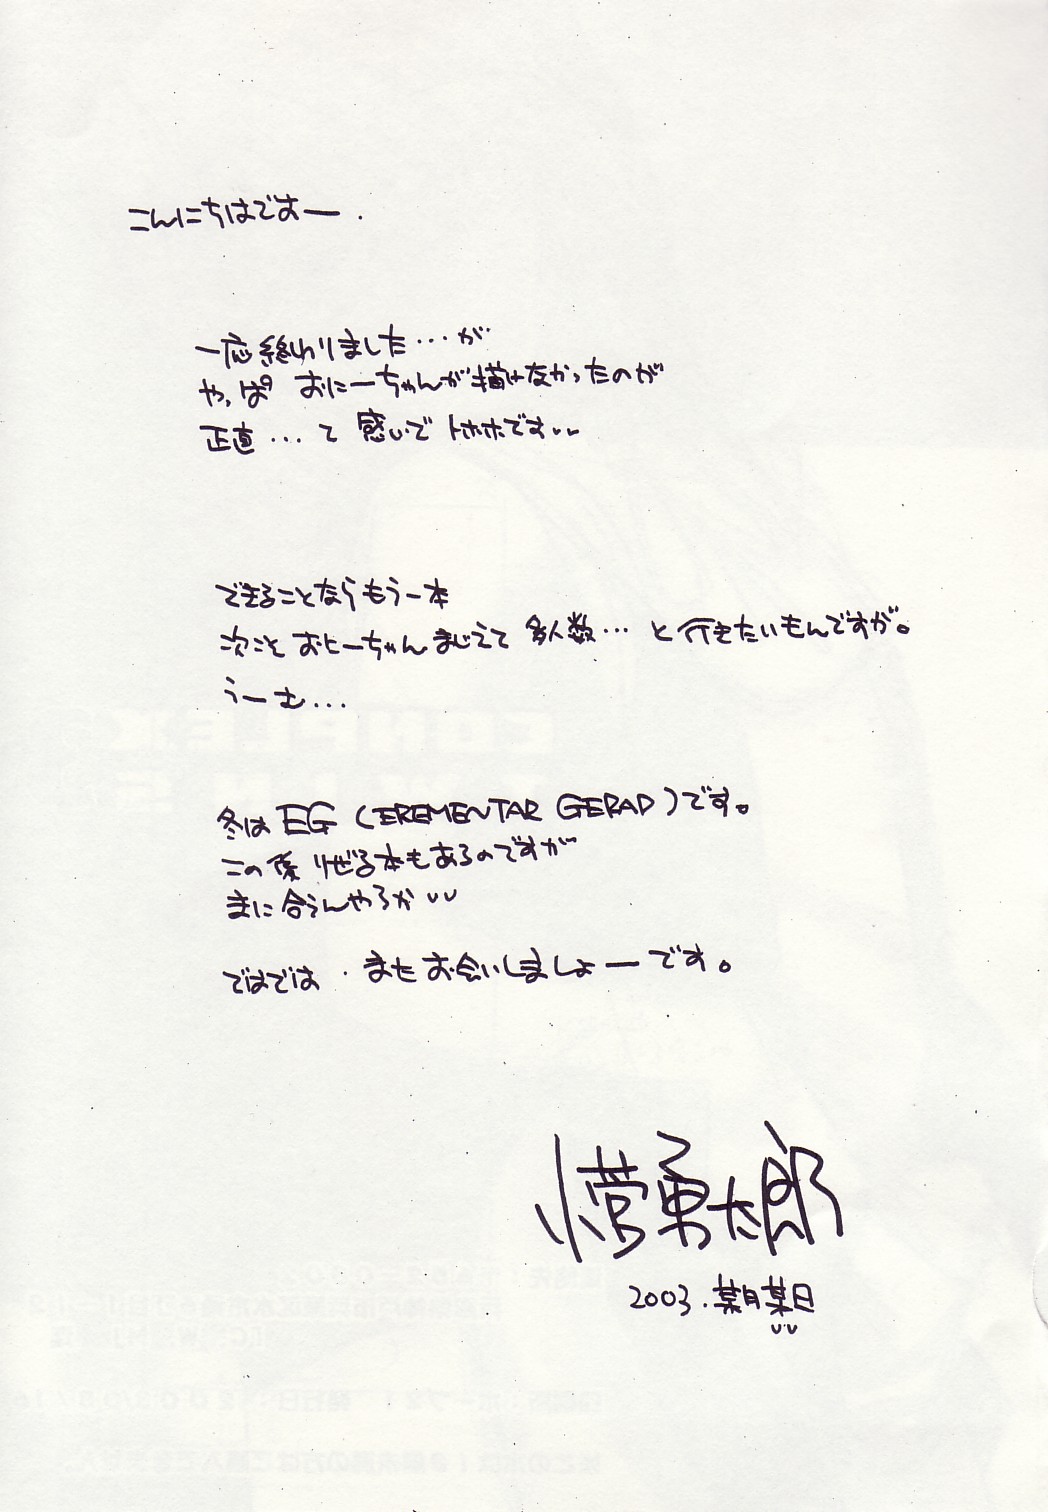 こんにちはですー.
一応終わりました…が
やっぱ おにーちゃんが描けなかったのが
正直…て 感じで トホホです
できることならもう一本
次こそ おにーちゃん まじえて 多人数… と行きたいもんですが。
うーむ…
冬は EG (EREMENTAR GERAD)です。
この後 りぜる本もあるのですが
まに合うんやろか
ではでは . またお会いしましょーです。
小菅勇太郎
2003.某月某日
CONPLEX